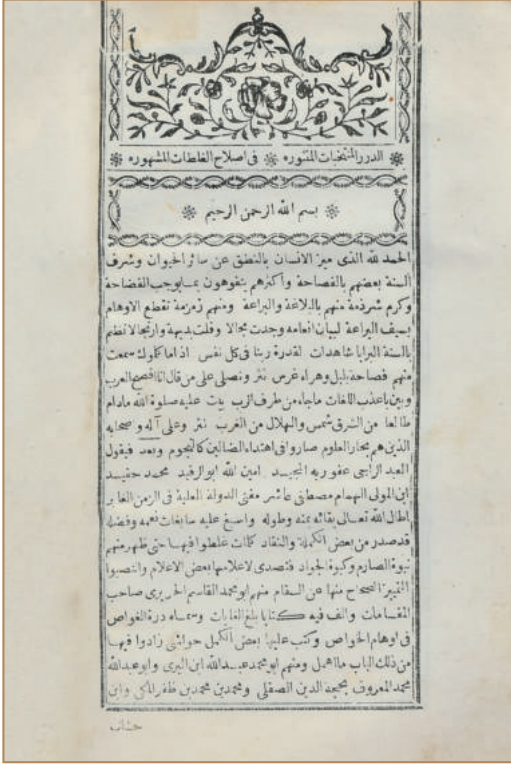 الدرر المنتخبات المنثوره في اصلاح الغلطات المشهوره
بسم الله الرحمن الرحيم
الحمد لله الذى ميز الانسان بالنطق عن سائر الحيوان وشرف
السنة بعضهم بالفصاحة وأكثرهم يتفوهون بمايوجب الفضاحة
وكرم شرذمة منهم بالبلاغة والبراعة ومنهم زمزمة تقطع الاوهام
بسيف اليراعة لبيان انعامه وجدت مجالا وقلت بديهة وارتجالا نظم
بالسنة البرايا شاهدات لقدرة ربنا فى كل نفس اذ اما كلوك سمعت
منهم فصاحة بلبل وهراء غرس نثر ونصلى على من قال انا افصح العرب
وبين باعذب اللغات ماجاء من طرف الرب بيت عليه صلوة الله مادام
طالعا من الشرق شمس والهلال من الغرب نثر وعلى آله وصحابه
الذين هم بحار العلوم صاروا فى اهتداء الضالين كالنجوم وبعد فيقول
العبد الراجى عفو ربه المجيد امين الله ابو الرفيد محمد حفيد
ابن المولى الهمام مصطفى عاشر مفتى الدولة العلية فى الزمن الغابر
اطال الله تعالى بقائه بمنه وطوله واسبغ عليه سابغات نعمه وفضله
قد صدر من بعض الكملة والنقاد كلمات غلطوا فيها حتى ظهر منهم
نبوة الصارم وكبوة الجواد فتصدى لاعلامها بعض الاعلام وانتصبوا
لتمييز الصحاح منها عن السقام منهم ابو محمد القاسم الحريرى صاحب
المقامات والف فيه كتابا بلغ الغايات وسماه درة الغواص
فى اوهام الخواص وكتب عليها بعض الكمل حواشى زادوا فيها
من ذلك الباب ما اهمل ومنهم ابو محمد عبد الله ابن البرى وابو عبد الله
محمد المعروف بحجة الدين الصقلى ومحمد بن محمد بن ظفر المكى وابن
خشاب